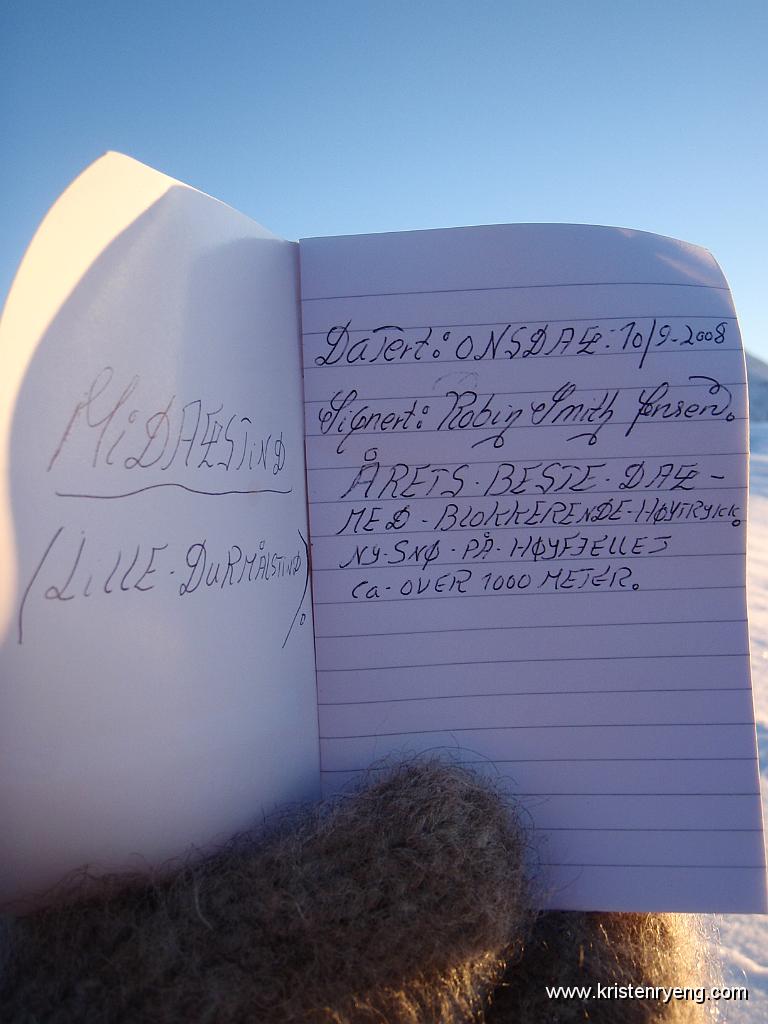 MiDAGSTiND
(LiLLE-DuRMÅLSTIND).
DaTert: ONSDAG: 10/9-2008
Signert: Robin Smith Jensen.
ÅRETS-BESTE-DAG-
MED-BLOKKERENDE-HØYTRYKK.
NY-SNØ-PÅ-HØYFJELLET
Ca-OVER 1000 METER.
www.kristenryeng.com